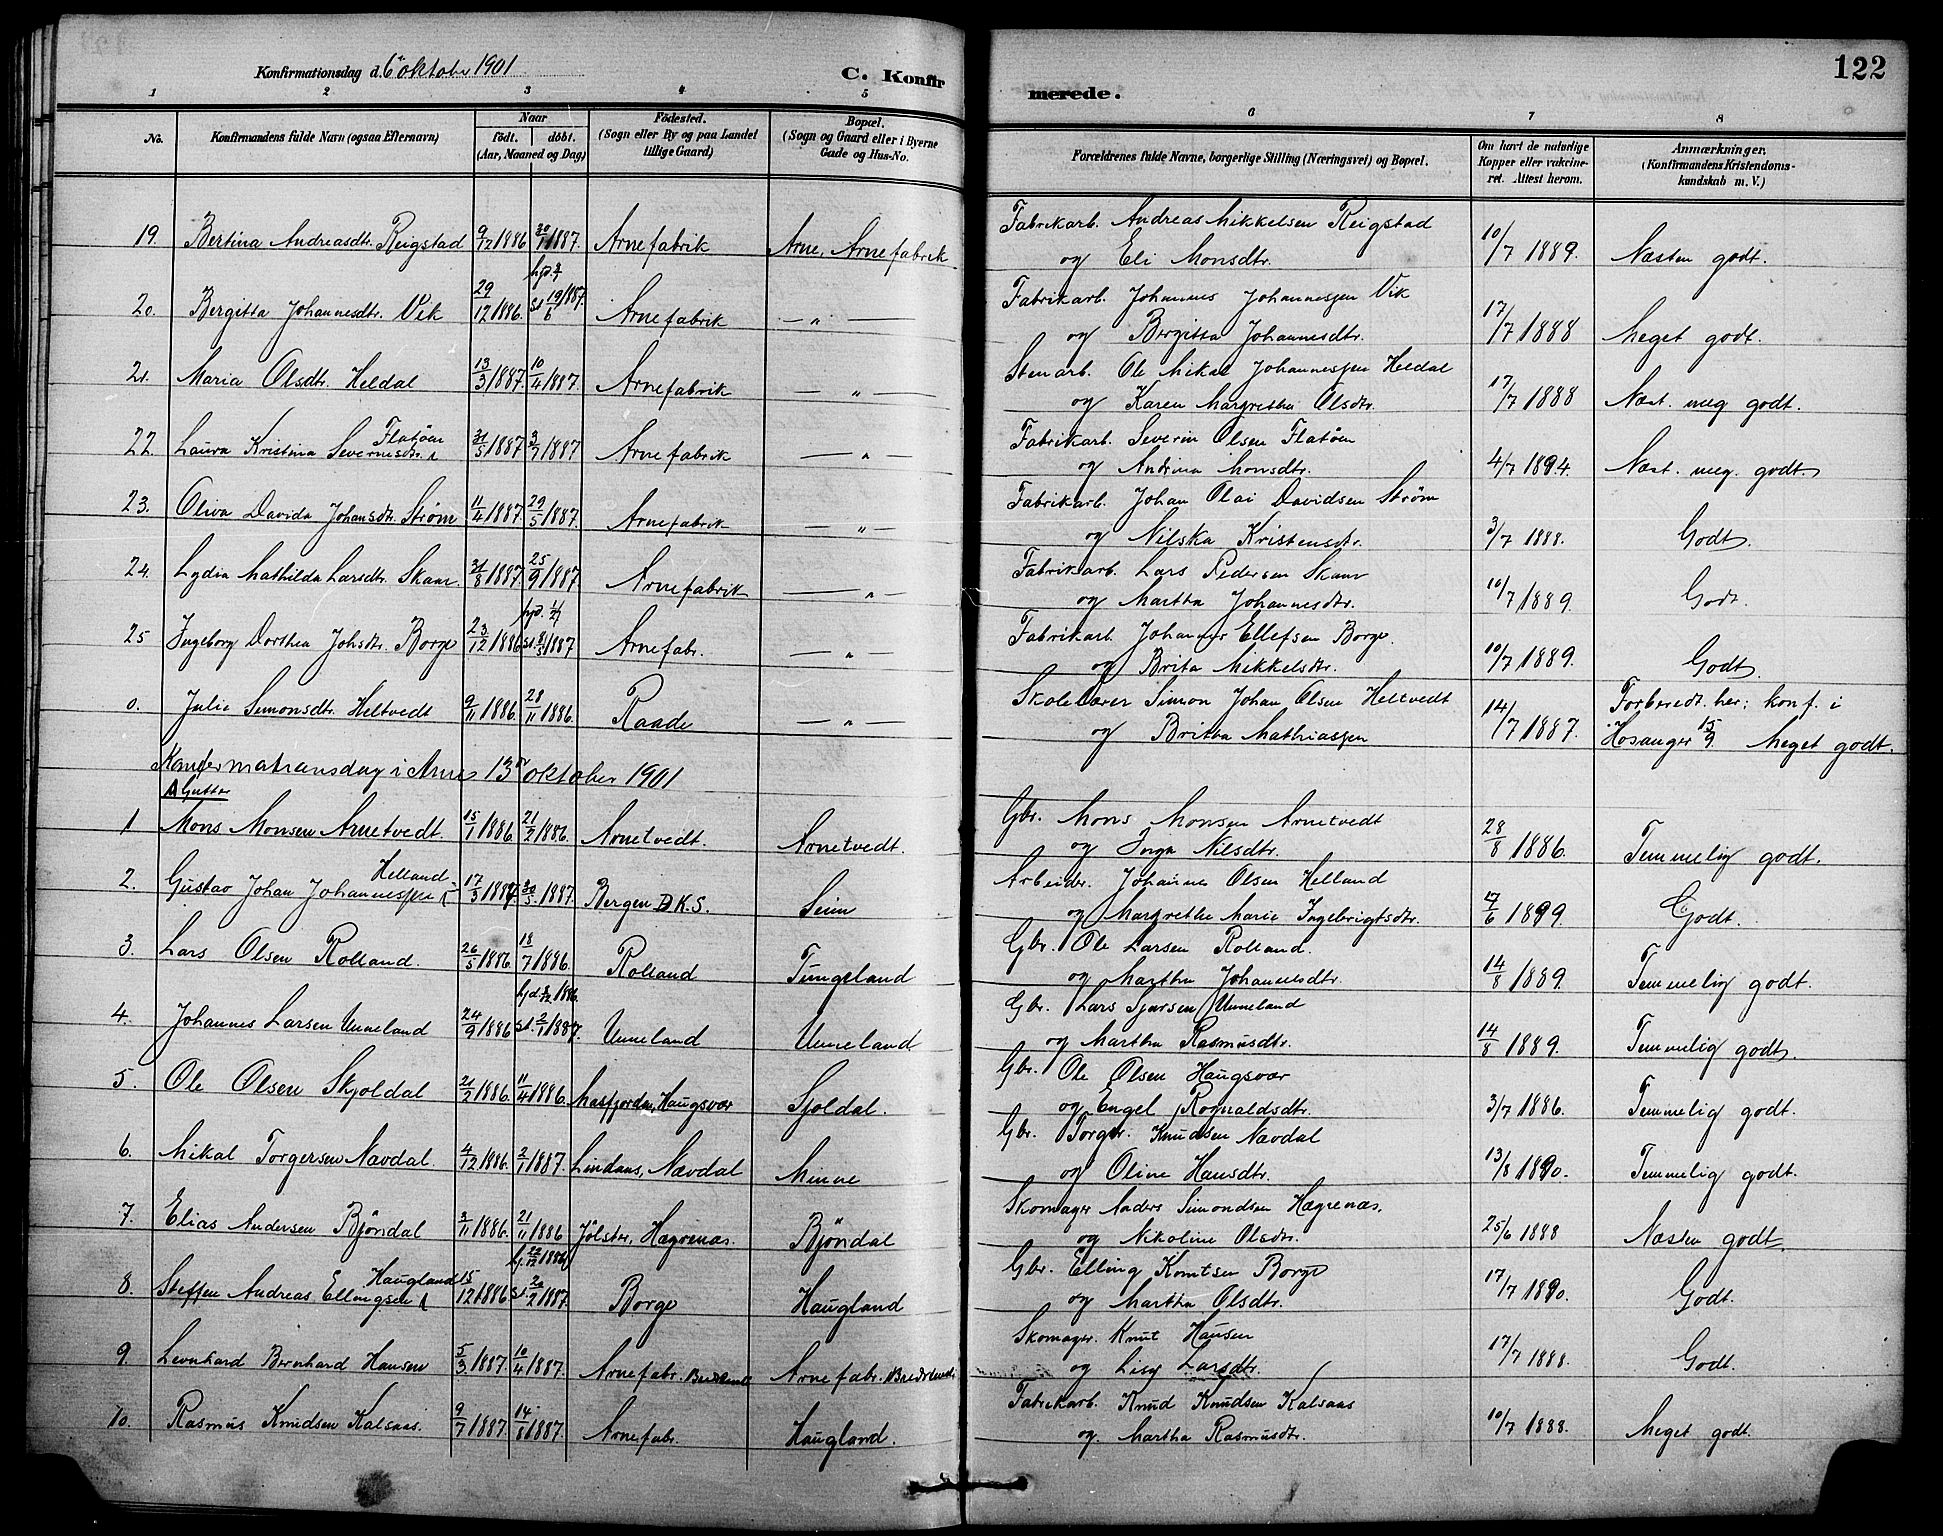 Konfirmationsdag d. 6te oktober 1901
C. Konfirmerede.
122
1 2 3 4 5 6 7 8
No.
Konfirmandens fulde Navn (ogsaa Efternavn)
Naar
Födt. döbt.
(Aar, Maaned og Dag)
Födested.
(Sogn eller By og paa Landet
tillige Gaard)
Bopæl.
(Sogn og Gaard eller i Byerne
Gade og Hus-No.
Forældrenes fulde Navne, borgerlige Stilling (Næringsvei) og Bopæl.
Om havt de naturlige
Kopper eller vakcine-
ret. Attest herom.
Anmærkninger.
(Konfirmandens Kristendoms-
kundskab m. V.)
19. Bertina Andreasdtr. Reigstad 9/12 1886 30/1 1887. Arnefabrik Arne, Arnefabrik Fabrikarb. Andreas Mikkelsen Reigstad
og Eli Monsdtr. 10/7 1889. Næsten godt.
20. Bergitta Johannesdtr. Vik 29/12 1886. st 19/6 1887. Arnefabrik — „ — Fabrikarb. Johannes Johannessen Vik
og Bergitta Johannesdtr. 17/7 1888 Meget godt.
21. Maria Olsdtr. Heldal 13/3 1887. 10/4 1887. Arnefabrik — „ — Stenarb. Ole Mikal Johannessen Heldal
og Karen Margrethe Olsdtr. 17/7 1888 Næst. meg godt.
22. Laura Kristina Severinsdtr. Flatöen 31/5 1887 3/7 1887 Arnefabrik — „ Fabrikarb. Severin Olsen Flatöen
og Andrina Monsdtr. 4/7 1894. Næst. meg. godt.
23. Oliva Davida Johansdtr. Strøm 11/4 1887. 29/5 1887. Arnefabrik — „ — Fabrikarb. Johan Olai Davidsen Strøm
og Nilska Kristensdtr. 3/7 1888. Godt.
24. Lydia Mathilda Larsdtr. Skaar. 31/8 1887. 25/9 1887. Arnefabrik — „ — Fabriksarb. Lars Pedersen Skaar
og Martha Johannesdtr. 10/7 1889. Godt.
25 Ingeborg Dorthea Johsdtr. Borge 23/12 1886 st. 8/5 1887 Arnefabr. — „ — Fabrikarb. Johannes Ellefsen Borge.
og Brita Mikkelsdtr. 10/7 1889. Godt
0. Julie Simonsdtr. Heltvedt 9/11 1886. 28/11 1886. Raade — „ — Skolelærer Simon Johan Olsen Heltvedt
og Britha Mathiassen 14/7 1887. Forberedt her; konf. i
Hosanger 15/9. Meget godt.
Konfermationsdag i Arne 13de oktober 1901
A Gutter
1 Mons Monsen Arnetvedt. 15/1 1886. 21/2 1886. Arnetvedt. Arnetvedt. Gbr. Mons Monsen Arnetvedt
og Inga Nilsdtr. 28/8 1886. Temmelig godt.
2. Gustav Johan Johannessen Helland 17/3 1887 30/5 1887. Bergen D.K.S. Seim Arbeider. Johannes Olsen Helland
og Margrethe Marie Ingebrigtsdtr. 1899. Godt.
3. Lars Olsen Rolland. 26/5 1886. 18/7 1886. Rolland Tungeland Gbr. Ole Larsen Rolland.
og Martha Johannesdtr. 14/8 1889. Temmelig godt.
4. Johannes Larsen Unneland 24/9 1886 st. 2/1 1887. Unneland Unneland Gbr. Lars Sjursen Unneland
og Martha Rasmusdtr. 14/8 1889. Temmelig godt.
5. Ole Olsen Skjoldal 21/2 1886. 11/4 1886. Masfjorden, Haugsvær Sjoldal. Gbr. Ole Olsen Haugsvær
og Engel Rognaldsdtr. 3/7 1886. Temmelig godt.
6. Mikal Torgersen Nævdal. 4/12 1886. 2/1 1887. Lindaas, Nævdal Minne Gbr. Torger. Knudsen Nævdal
og Oline Hansdtr. 13/8 1890. Temmelig godt.
7. Elias Andersen Bjöndal 3/11 1886. 21/11 1886 Jölster, Hægrenæs. Bjöndal Skomager Anders Simondsen Hægrenæs.
og Nikoline Olsdtr. 25/6 1888 Næsten godt.
8. Steffen Andreas Ellingsen Haugland 15/12 1886 st. 20/2 1887. Borge Haugland Gbr. Elling Knutsen Borge
og Martha Olsdtr. 17/7 1890. Godt.
9. Leonhard Bernhard Hansen 5/3 1887. 10/4 1887. Arnefabr. Arnefabr. Skomager. Knut Hansen
og Lisa Larsdtr. 17/7 1888. Godt.
10. Rasmus Knudsen Kalsaas. 9/7 1887. 14/8 1887. Arnefabr. Haugland. Fabrikarb. Knud Knudsen Kalsaas
og. Martha Rasmusdtr. 10/7 1888. Meget godt.